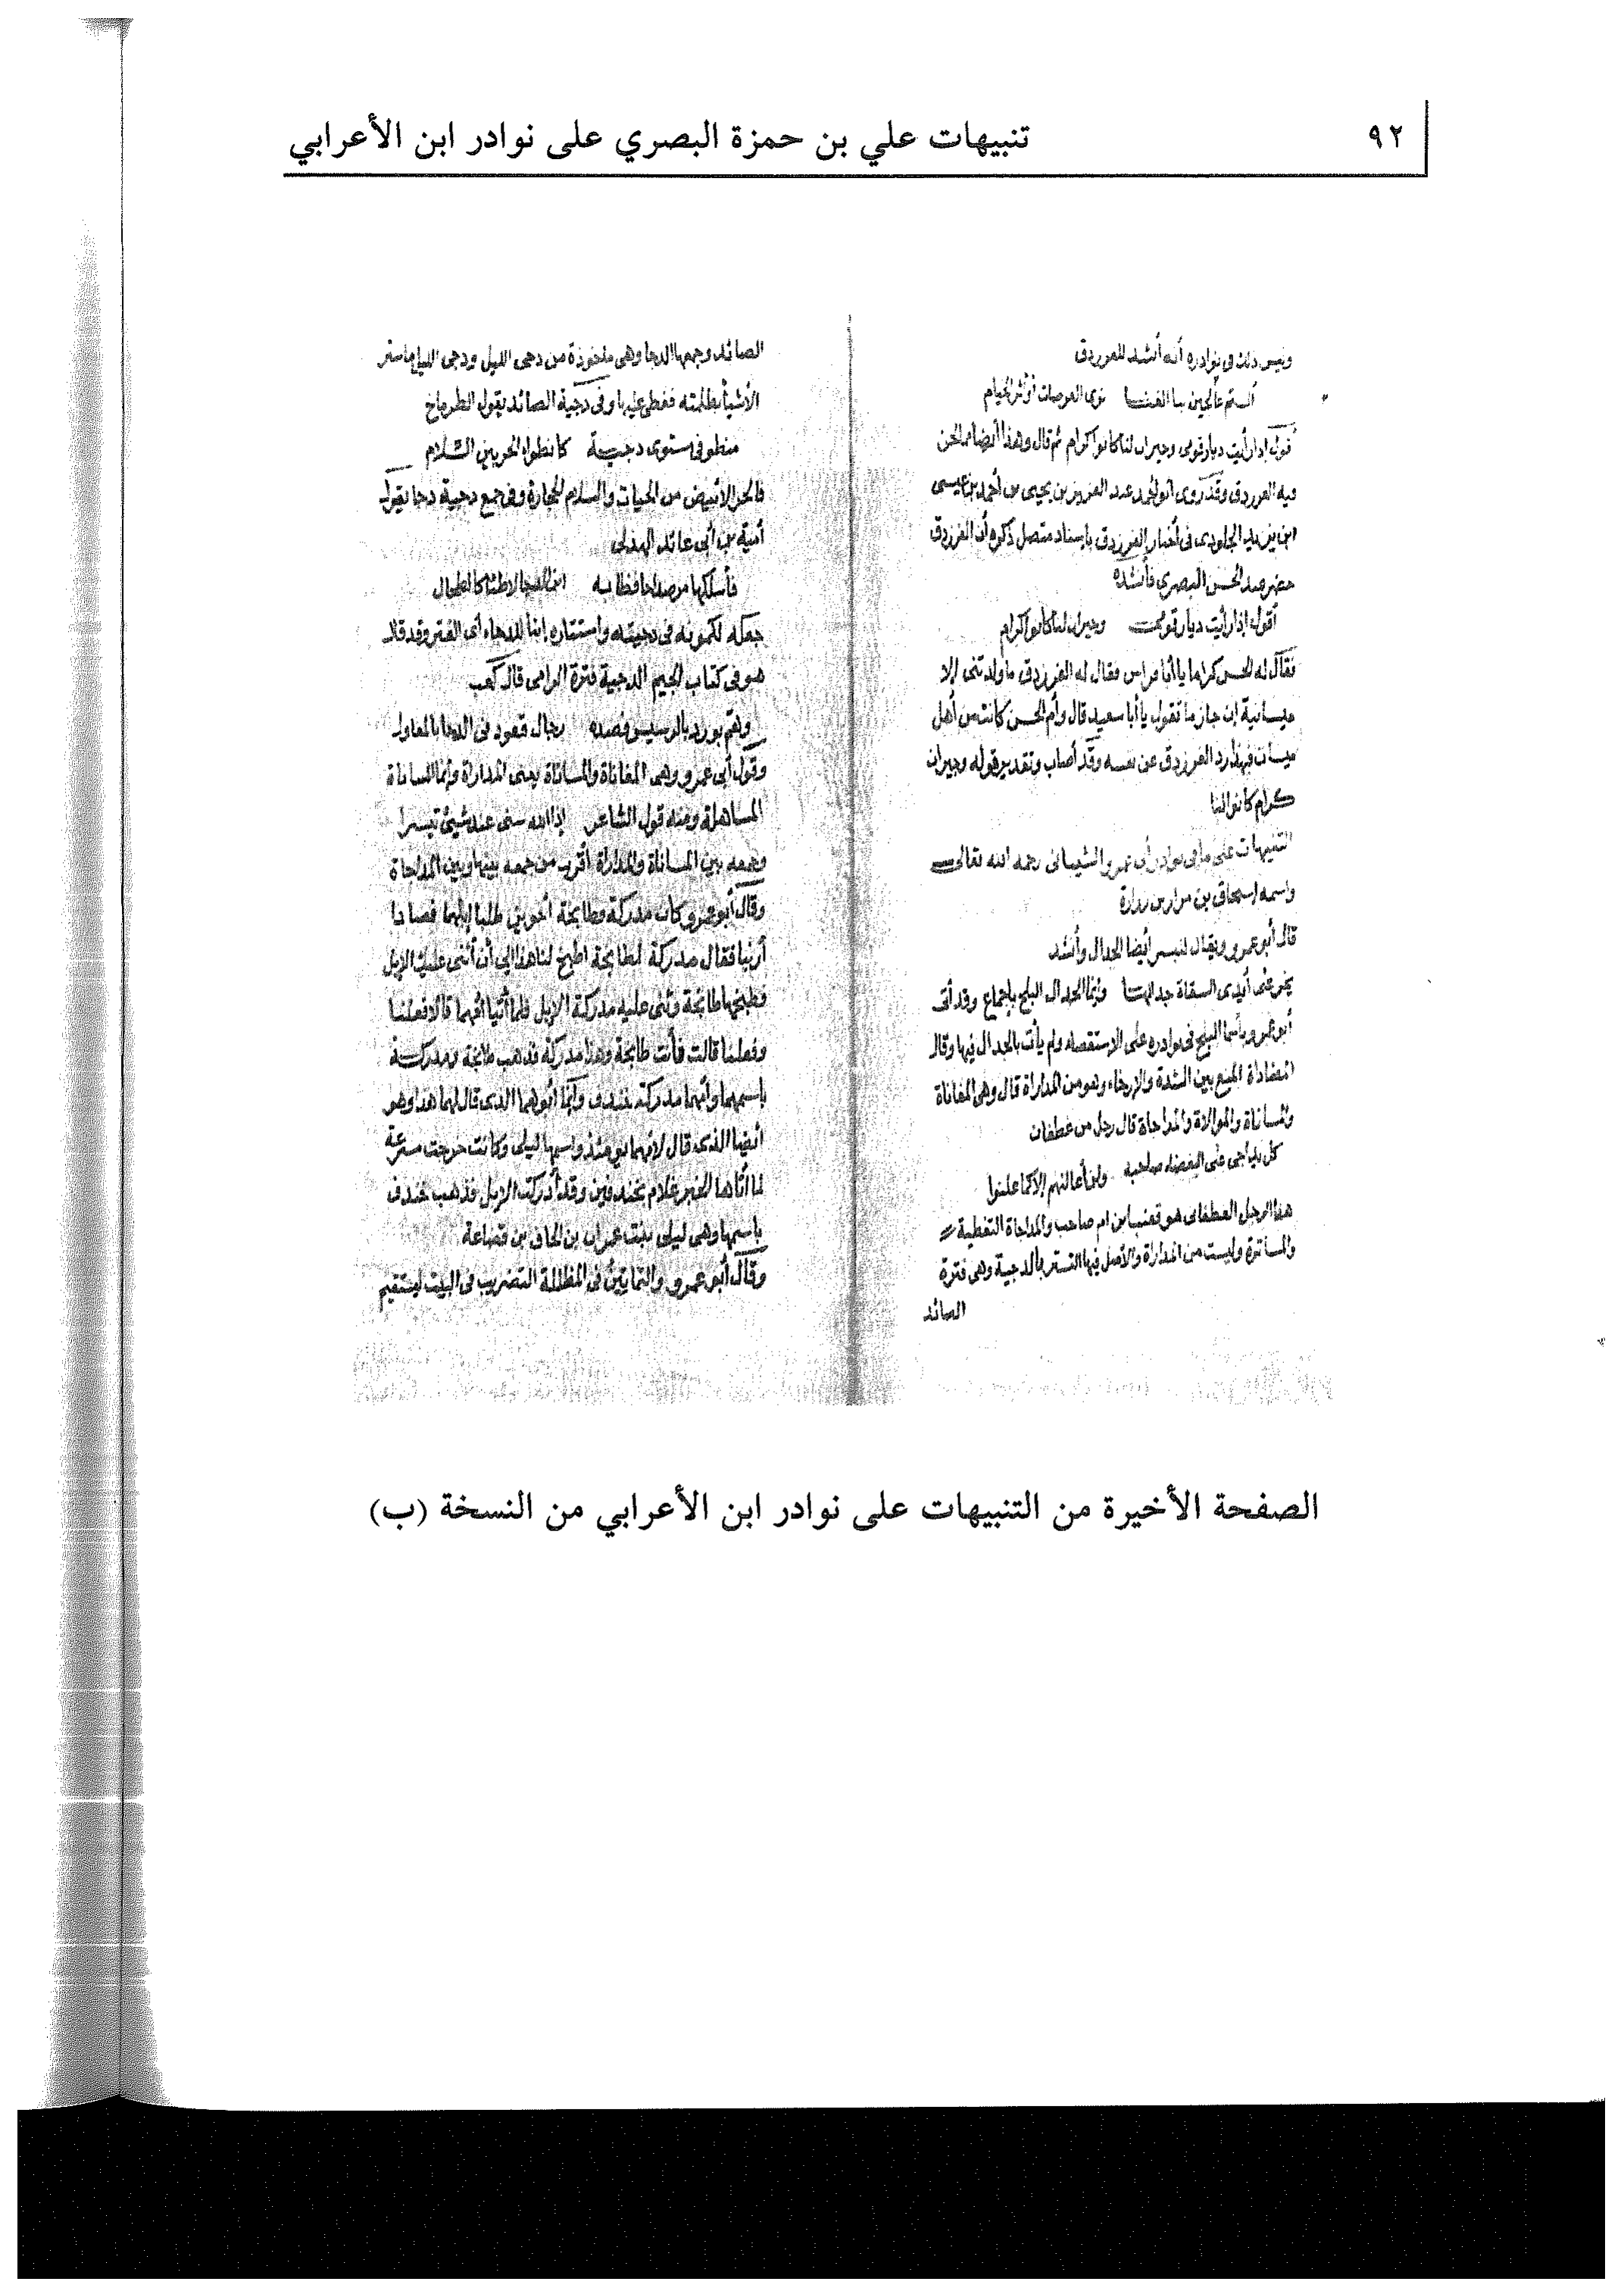 ٩٢
تنبيهات علي بن حمزة البصري على نوادر ابن الأعرابي
وليس ذلك في نوادره أنه أنشد للفرزدق
ألستم عالجين بنا لعنا نرى العرصات أو أثر الخيام
أقول إذا رأيت ديار قومي وجيران لنا كانوا كرام ثم قال وهذا أيضا مما لحن
فيه الفرزدق وقد روى أبو أحمد عبد العزيز بن يحيى بن أحمد بن عيسى
ابن يزيد الجلودي في أخبار الفرزدق بإسناد متصل ذكره أن الفرزدق
حضر عند الحسن البصري فأنشده
أقول إذا رأيت ديار قومي وجيران لنا كانوا كرام
فقال له الحسن كراما يا أبا فراس فقال له الفرزدق ما ولدتني إلا
ميسانية إن جاز ما تقول يا أبا سعيد قال وأم الحسن كانت من أهل
ميسان فهذا رد الفرزدق عن نفسه وقد أصاب وتقدير قوله وجيران
كرام كانوا لنا
التنبيهات على ما في نوادر أبي عمرو الشيباني رحمه الله تعالى
واسمه إسحاق بن مرار بن زرارة
قال أبو عمرو ويقال للبسر أيضا الجدال وأنشد
يخر على أيدي السقاة جدالها وإنما الجدال البلح بإجماع وقد أتى
أبو عمرو بأسما البلح في نوادره على الاستقصاء ولم يأت بالجدال فيها وقال
المصاداة المنع بين الشدة والإرخاء وهو من المداراة قال وهي المفاناة
والمساناة والموالاة والمداجاة قال رجل من غطفان
كل يداجي على البغضاء صاحبه ولن أعالنهم إلا كما علنوا
هذا الرجل الغطفاني هو قعنب ابن ام صاحب والمداجاة التغطية
والمساترة وليست من المداراة والأصل فيها التستر بالدجية وهي قترة
الصائد
الصائد وجمعها الدجا وهي مأخوذة من دجى الليل ودجى الليل ما ستر
الأشيأ بظلمته فغطى عليها وفي دجية الصائد يقول الطرماح
منطو في مستوى دجية كانطواء الحر بين السلام
فالحر الأبيض من الحيات والسلام الحجارة وفي جمع دجية دجا يقول
أمية بن أبي عائذ الهذلي
فأسلكها مرصدا حافظا به ابن الدجا لاطئا كالطحال
جعله لكمونه في دجيته واستتاره ابنا للدجاء أي القتر وقد قال
هو في كتاب الجيم الدجية قترة الرامي قال كعب
وهم بورد بالرسيس فصده رجال قعود في الدجا بالمعاول
وقول أبي عمرو وهي المفاناة والمساناة يعني المداراة وإنما المساناة
المساهلة ومنه قول الشاعر إذا الله سنى عقد شيئ تيسرا
وجمعه بين المساناة والمداراة أقرب من جمعه بينها وبين المداجاة
وقال أبو عمرو كان مدركة وطابخة أخوين طلبا إبلهما فصادا
أرنبا فقال مدركة لطابخة اطبخ لنا هذا إلى أن أثنى عليك الإبل
فطبخها طابخة وثنى عليه مدركة الإبل فلما أتيا أمهما قالا فعلنا
وفعلنا قالت فأنت طابخة وهذا مدركة فذهب طابخة ومدركة
باسمهما وأمهما مدركة خندف وإنما أبوهما الذي قال لهما هذا وهو
أيضا الذي قال لأمهما يومئذ واسمها ليلى وكانت خرجت مسرعة
لما أتاها الخبر علام تخندفين وقد أدركت الإبل فذهب خندف
باسمها وهي ليلى بنت عمران بن الحاف بن قضاعة
وقال أبو عمرو والتمايين في المظلة التضريب في البيت ليستقيم
الصفحة الأخيرة من التنبيهات على نوادر ابن الأعرابي من النسخة (ب)